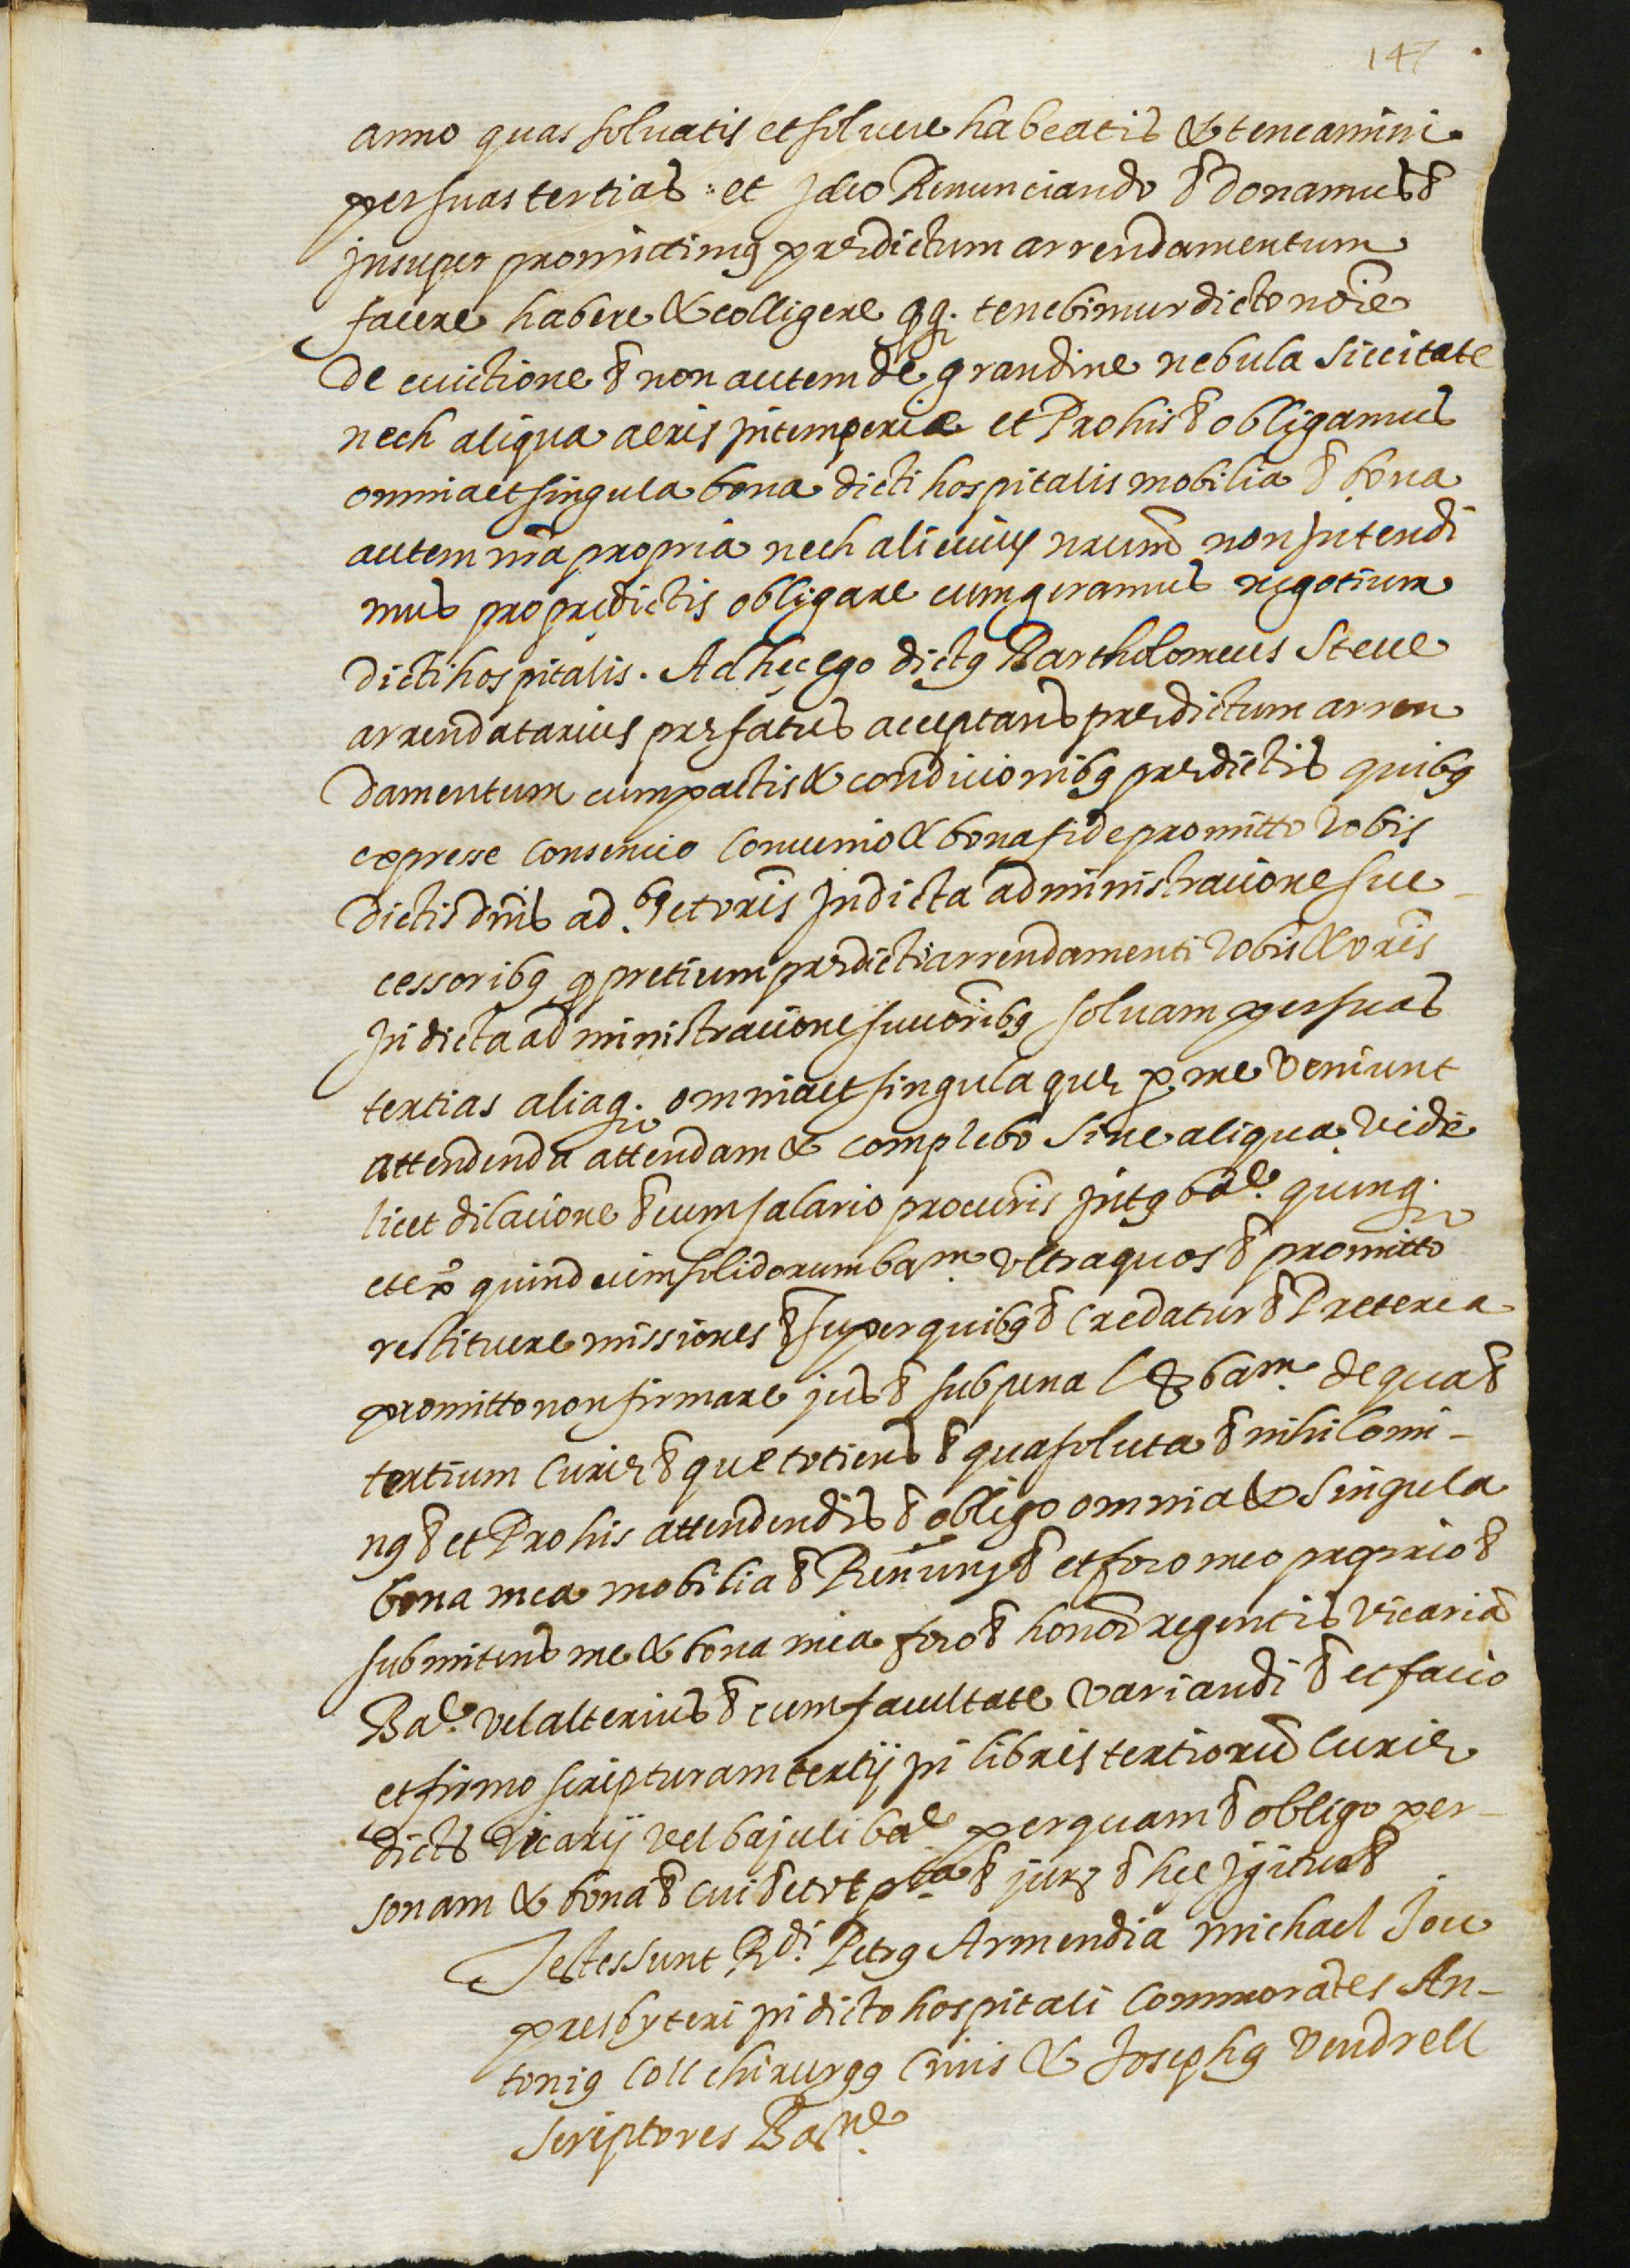 147
anno quas soluatis et soluere habeatis & teneamini
per suas tertias : et Ideo Renunciando & Donamus &
Insuper promittimus prædictum arrendamentum
facere habere & colligere qq. tenebimur dicto noĩe
de euictione & non autem de grandine nebula siccitate
nech aliqua aeris intemperie et Pro his & obligamus
omnia et singula bona dicti hospitalis mobilia & bona
autem nrã propria nech alicuius nrum̃ non Intendi
mus pro predictis obligare cum geramus negotium
dicti hospitalis. Ad hęc ego dictus Bartholomeus Steue
arrendatarius præfatus acceptans prædictum arren
damentum cum pactis & condicionibus prædictis quibus
expresse consencio conuenio & bona fide promitto vobis
dictis dñis ad.bus et vris̃ In dicta administracione suc_
cessoribus q̃ pretium prædicti arrendamenti vobis & vris̃
In dicta administracione succõribus soluam per suas
tertias aliaq. omnia et singula quæ p me veniunt
attendenda attendam & complebo sine aliqua vide
licet dilacione & cum salario procuris̃ Intus bae. quinq.
et ex̃ quindecim solidorum bam. vltra quos & promitto
restituere missiones & super quibus & credatur & Preterea
promitto non firmare jus & sub pena bam. de qua &
tertium curiæ & que totiens & qua soluta & nihilomi_
nus & et Pro his attendendis & obligo omnia & singula
bona mea mobilia & Renuns & et foro meo proprio &
submitens me & bona mea foro & honor̃ regentis vicariã
Bae. vel alterius & cum facultate variandi & et facio
et firmo scripturam tertij in libris tertiorũ curiæ
dicti vicarij vel bajuli bae. per quam & obligo per_
sonam & bona & cui & et vt pta & jur & hęc Igitur &
Testes sunt Rdi. Petrus Armendia michael Jou
presbyteri in dicto hospitali commorãtes An_
tonius Coll chirurgus ciuis & Josephus vendrell
scriptores Bane.